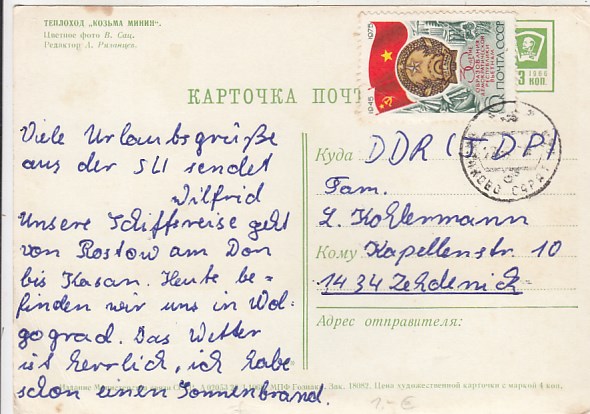 ТЕПЛОХОД „КОЗЬМА МИНИН“.
Цветное фото В. Сац.
Редактор Л. Рязанцев.
1945 1975
30 ЛЕТИЕ
ОБРАЗОВАНИЯ
ДЕМОКРАТИЧЕСКОЙ
РЕСПУБЛИКИ
ВЬЕТНАМ
ПОЧТА СССР
1966
3 КОП.
КАРТОЧКА ПОЧТ
Viele Urlaubsgrüße
aus der SU sendet
Wilfrid
Unsere Schiffsreise geht
von Rostow am Don
bis Kasan. Heute be-
finden wir uns in Wol-
gograd. Das Wetter
ist herrlich, ich habe
schon einen Sonnenbrand.
Куда DDR (ГДР)
Fam.
L. Kohlermann
Кому Kapellenstr. 10
1434 Zehdenick
Адрес отправителя:
Издание Министерства связи МПФ Гознака. Зак. 18082. Цена художественной карточки с маркой 4 коп.
1,- €